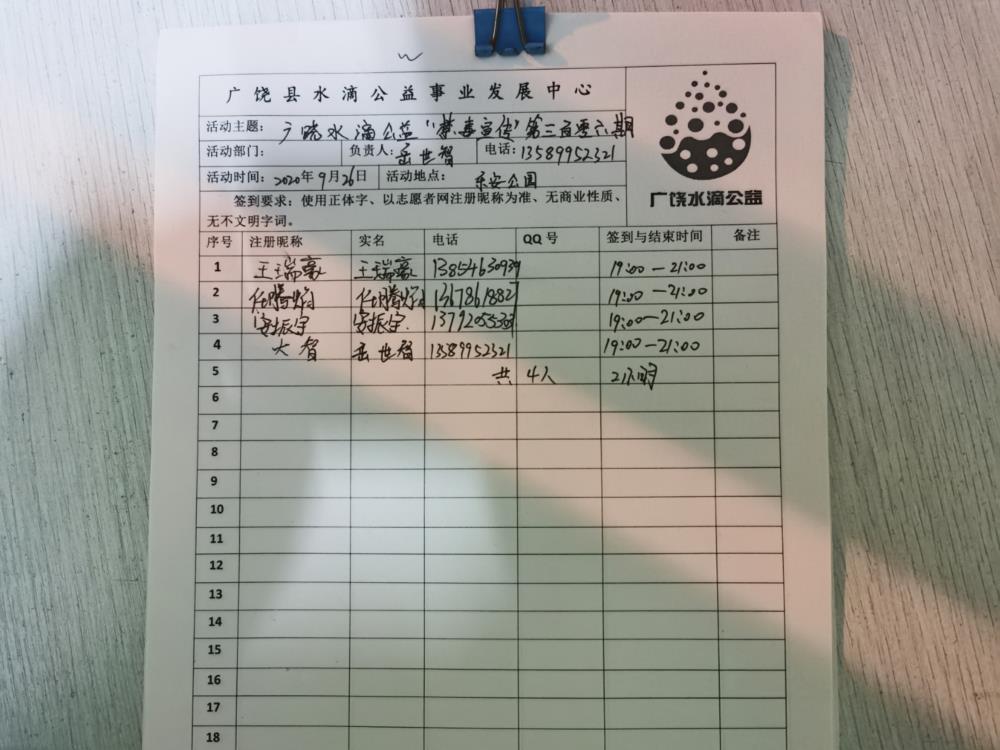 广饶县水滴公益事业发展中心
活动主题：广饶水滴公益"禁毒宣传"第三百零六期
活动部门： 负责人：岳世智 电话：13589952321
活动时间：2020年9月26日 活动地点：乐安公园
签到要求：使用正体字、以志愿者网注册昵称为准、无商业性质、
无不文明字词。
广饶水滴公益
序号 注册昵称 实名 电话 QQ 号 签到与结束时间 备注
1 王瑞豪 王瑞豪 13854630939 19:00—21:00
2 任腾焰 任腾焰 13678618827 19:00—21:00
3 安振宇 安振宇 19:00—21:00
4 大智 岳世智 13589952321 19:00—21:00
5 共 4人 2小时
6
7
8
9
10
11
12
13
14
15
16
17
18